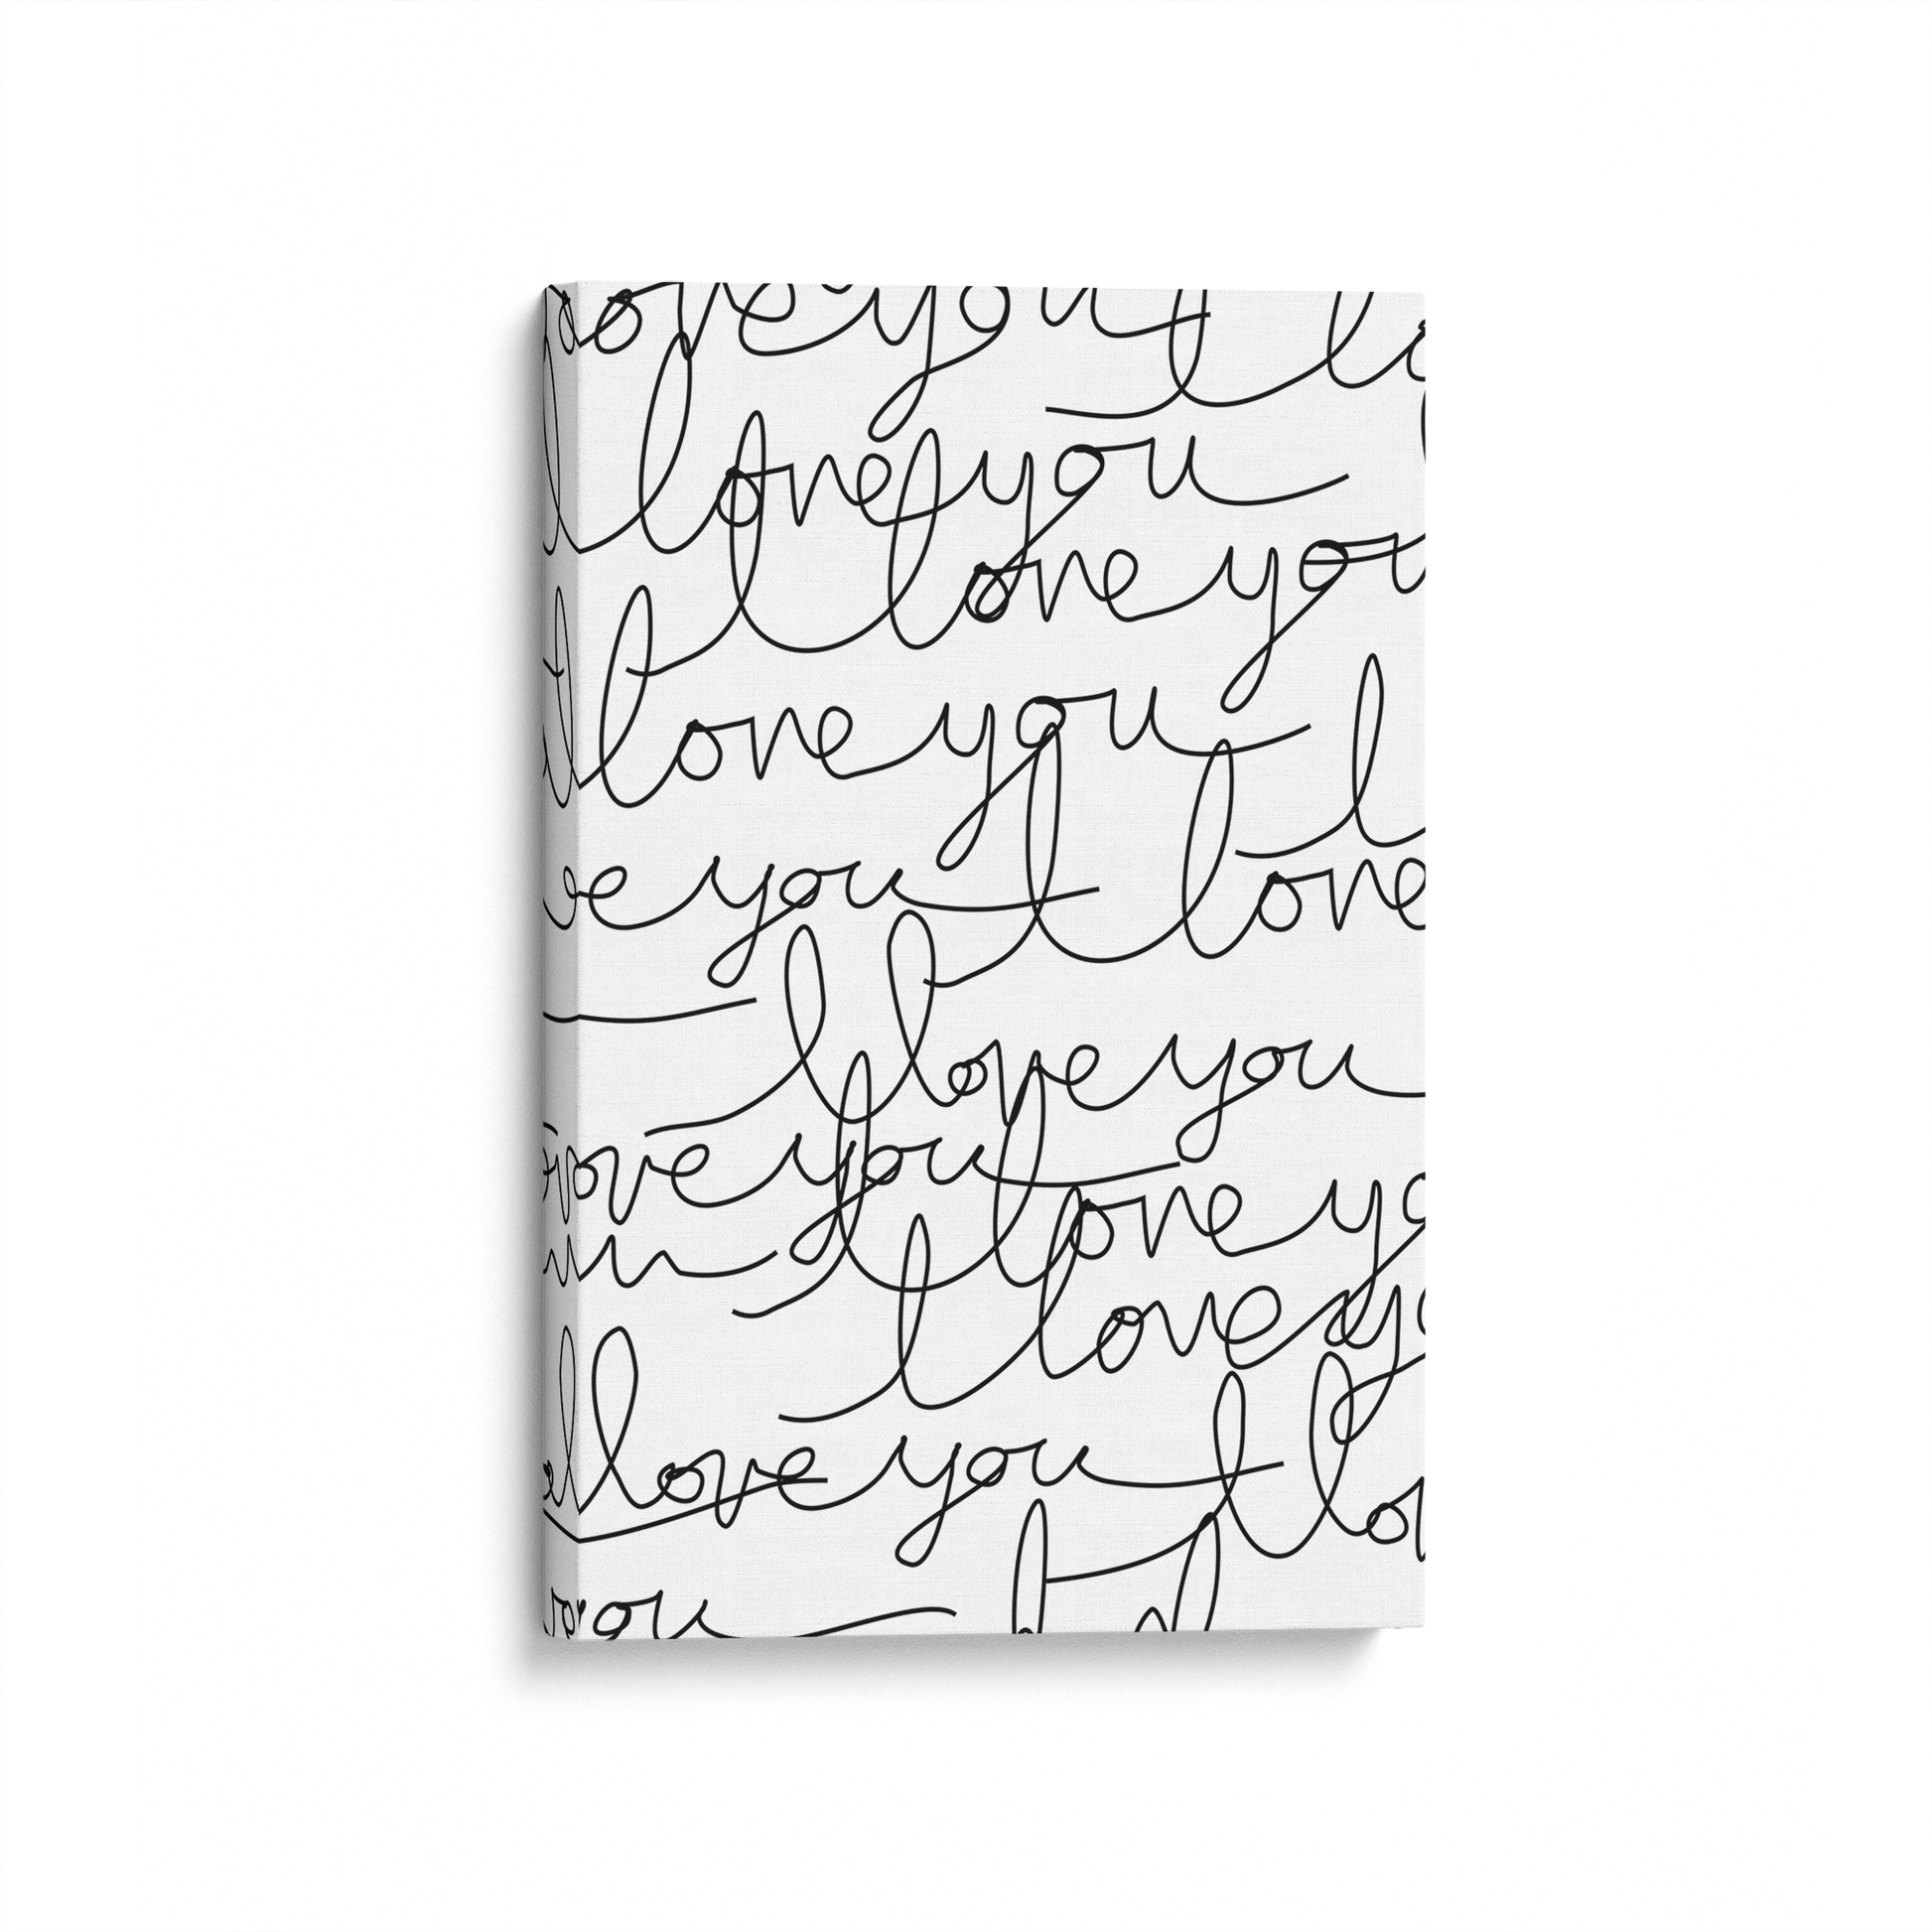 love you I lo
I love you
I love you
I love you
I love you I love
I love you
love you I love yo
I love yo
I love you I lo
you